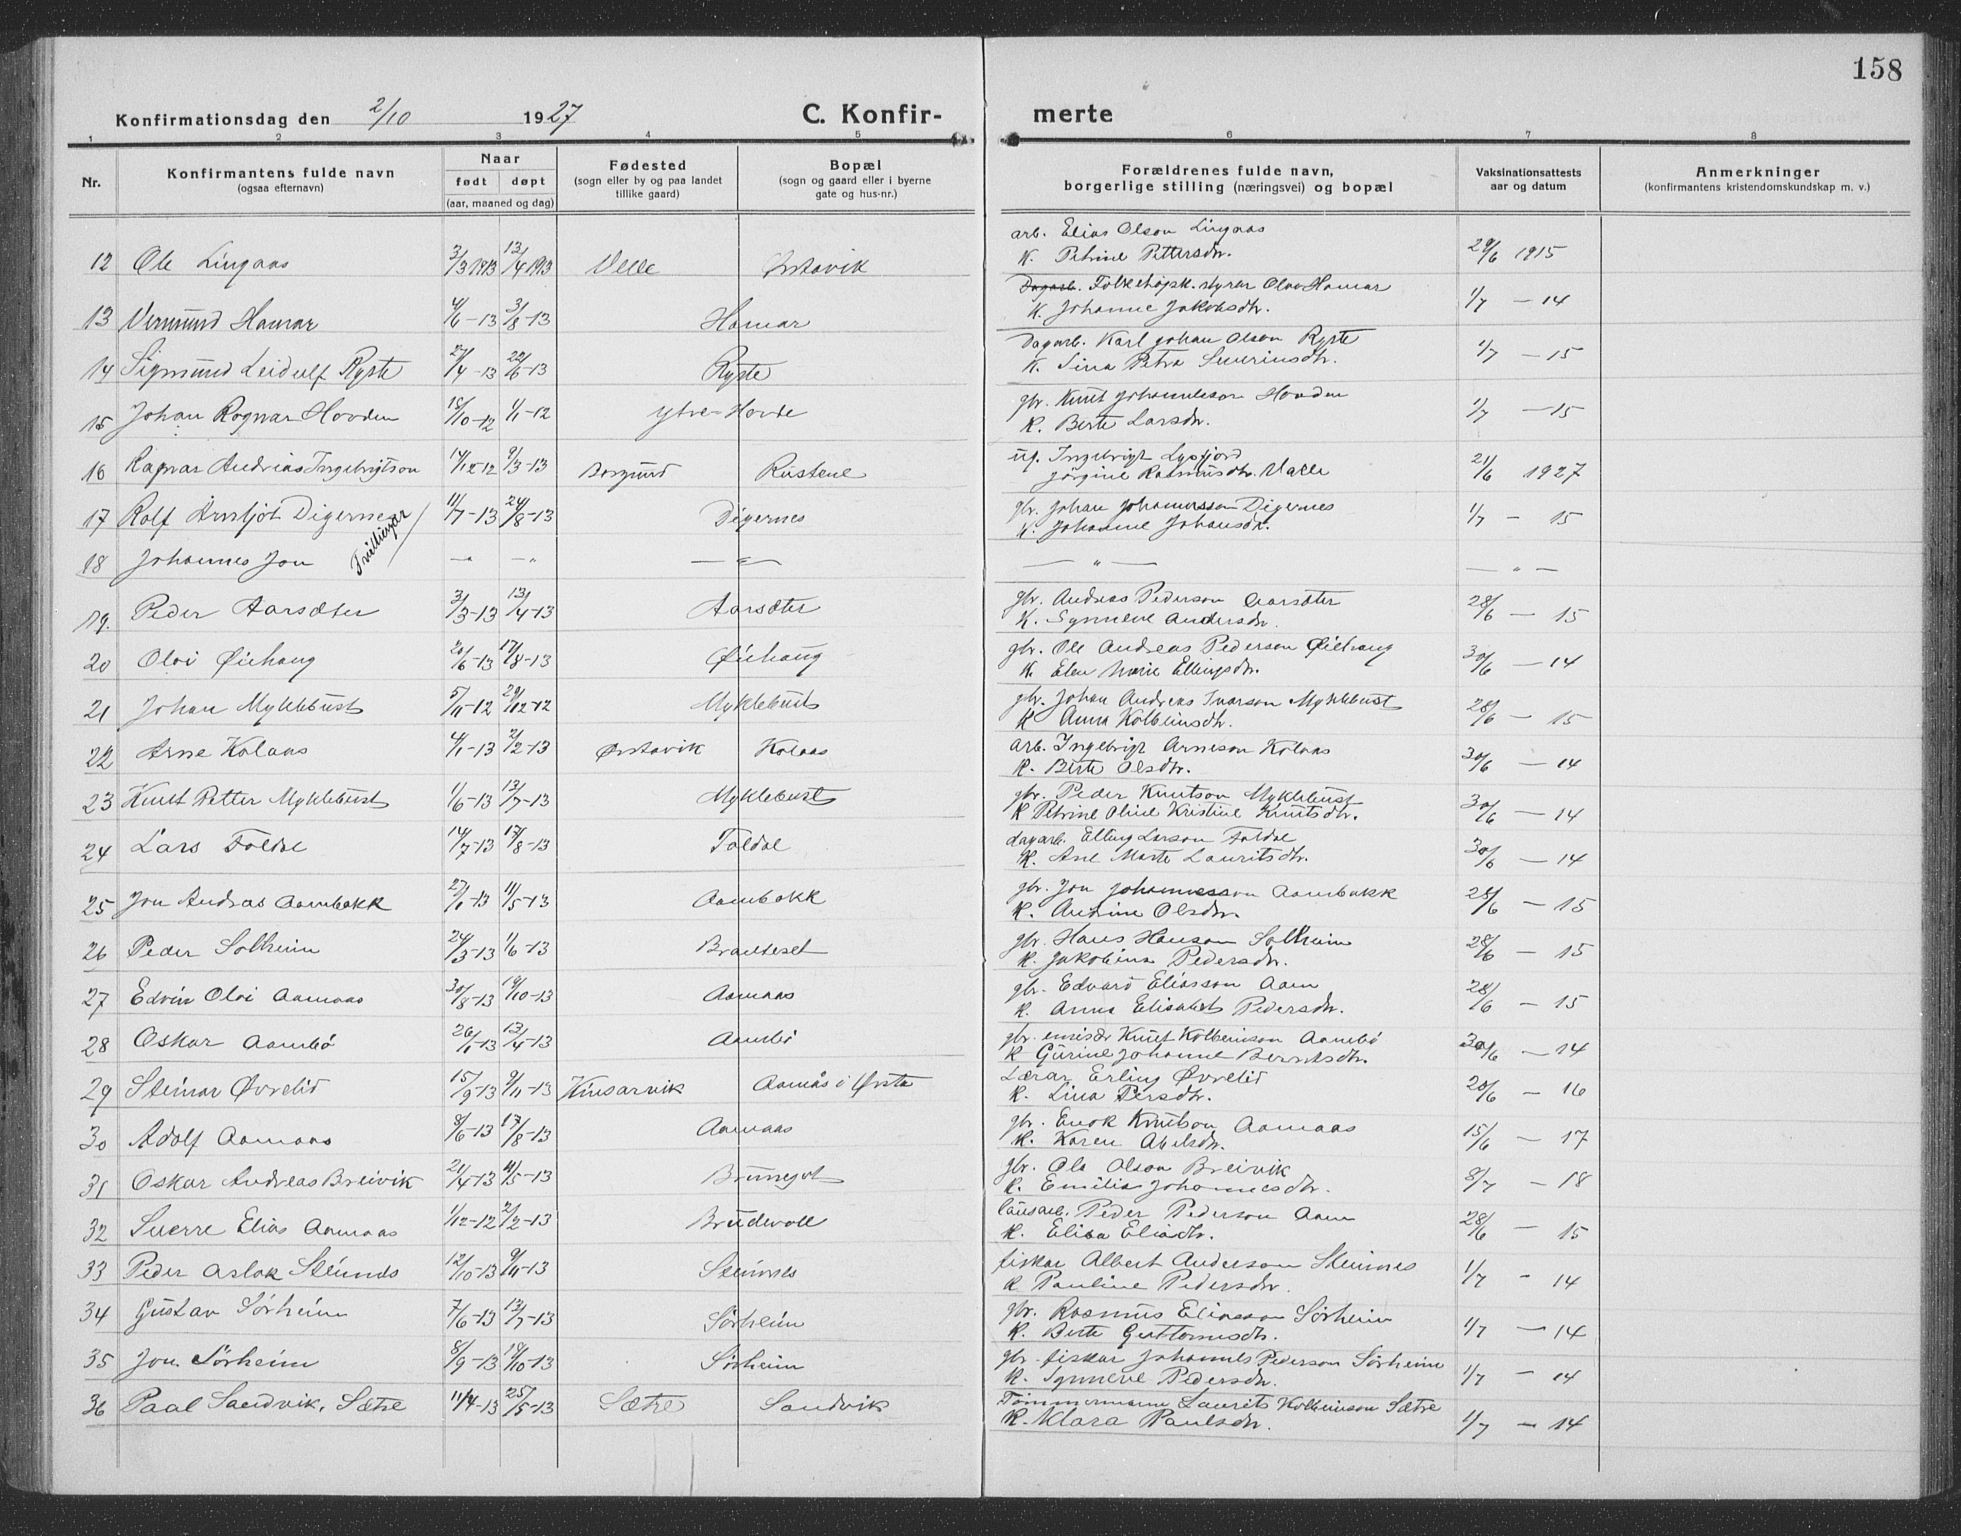 158
Konfirmationsdag den 2/10 1927 C. Konfir- merte
1 2 3 4 5 6 7 8
Nr. Konfirmantens fulde navn (ogsaa efternavn) Naar født døpt (aar, maaned og dag) Fødested (sogn eller by og paa landet tillike gaard) Bopæl (sogn og gaard eller i byerne gate og hus-nr.) Forældrenes fulde navn, borgerlige stilling (næringsvei) og bopæl Vaksinationsattests aar og datum Anmerkninger (konfirmantens kristendomskundskap m. v.)
12 Ole Lingaas 3/3 1913 13/4 1913 Velle Ørstavik arb. Elias Olson Lingaas
K. Petrine Pettersdtr. 29/6 1915
13 Vermund Hamar 4/6-13 3/8-13 Hamar Dagarb. Folkehøjsk. styrar Olav Hamar
K. Johanne Jakobsdtr. 1/7 - 14
14 Sigmund Leidulf Ryste 27/4-13 22/6-13 Ryste Dagarb. Karl Johan Olson Ryste
K. Sina Petra Severinsdtr. 1/7 - 15
15 Johan Ragnar Hovden 15/10-12 1/11-12 ytre-Hovde gbr. Knut Johanneson Hovden
K. Berte Larsdtr. 1/7 - 15
16 Ragnar Andreas Ingebrigtson 14/12-12 9/3-13 Borgund Rustene ug. Ingebrigt Lysfjord
Jørgine Rasmusdtr. Valle 21/6 1927
17 Rolf Arnljot Digernes 11/7-13 24/8-13 Digernes gbr. Johan Johannesson Digernes
K. Johanne Johansdtr. 1/7 - 15
Trillingar
18 Johannes Jon -"- -"- -"- -"- -"-
19. Peder Aarsæter 3/3-13 13/4-13 Aarsæter gbr. Andreas Pederson Aarsæter
K. Synneve Andersdtr. 28/6 - 15
20 Olai Øiehaug 20/6-13 17/8-13 Øiehaug gbr. Ole Andreas Pederson Øiehaug
K. Elen Marie Ellingsdtr. 30/6 - 14
21 Johan Myklebust 5/11-12 29/12-12 Myklebust gbr. Johan Andreas Ivarson Myklebust
K Anna Kolbeinsdtr. 28/6 - 15
22 Arne Kolaas 4/1-13 2/2-13 Ørstavik Kolaas arb. Ingebrigt Arneson Kolaas
K. Berte Olsdtr. 30/6 - 14
23 Knut Petter Myklebust 1/6-13 13/7-13 Myklebust gbr. Peder Knutson Myklebust
K Petrine Oline Kristine Knutsdtr. 30/6 - 14
24 Lars Foldal 14/7-13 17/8-13 Foldal dagarb. Elling Larson Foldal
K. Ane Marte Lauritsdtr. 30/6 - 14
25 Jon Andreas Aambakk 27/1-13 11/5-13 Aambakk gbr. Jon Johannesson Aambakk
K. Andrine Olsdtr. 28/6 - 15
26 Peder Solheim 24/3-13 1/6-13 Brauteset gbr. Hans Hanson Solheim
K. Jakobina Pedersdtr. 28/6 - 15
27 Edvin Olai Aamaas 30/8-13 19/10-13 Aamaas gbr. Edvard Eliasson Aam
K. Anna Elisabet Pedersdtr. 28/6 - 15
28 Oskar Aambø 26/1-13 13/4-13 Aambø gbr. Knut Kolbeinson Aambø
K Gurine Johanne Berntsdtr. 30/6 - 14
29 Steinar Øvrelid 15/9-13 9/11-13 Kinsarvik Aamås i Ørsta Lærar Erling Øvrelid
K. Lina Persdtr. 20/6 - 16
30 Adolf Aamaas 8/6-13 17/8-13 Aamaas gbr. Enok Knutson Aamaas
K. Karen Abelsdtr. 15/6 - 17
31 Oskar Andreas Breivik 21/4-13 11/5-13 Brungot gbr. Ole Olson Breivik
K. Emilie Johannesdtr. 8/7 - 18
32 Sverre Elias Aamaas 1/12-12 2/2-13 Brudevoll Peder Pederson Aam
K. Elisa Eliasdtr. 28/6 - 15
33 Peder Aslak Steinnes 12/10-13 9/11-13 Steinnes fiskar Albert Anderson Steinnes
K Pauline Pedersdtr. 1/7 - 14
34 Gustav Sørheim 7/6-13 13/7-13 Sørheim gbr. Rasmus Eliasson Sørheim
K. Berte Guttormsdtr. 1/7 - 14
35 Jon Sørheim 8/9-13 19/10-13 Sørheim gbr. fiskar Johannes Pederson Sørheim
K. Synneve Pedersdtr. 1/7 - 14
36 Paal Sandvik, Sætre 11/4-13 25/5-13 Sætre Sandvik Tømmermann Laurits Kolbeinson Sætre
K. Klara Paulsdtr. 1/7 - 14